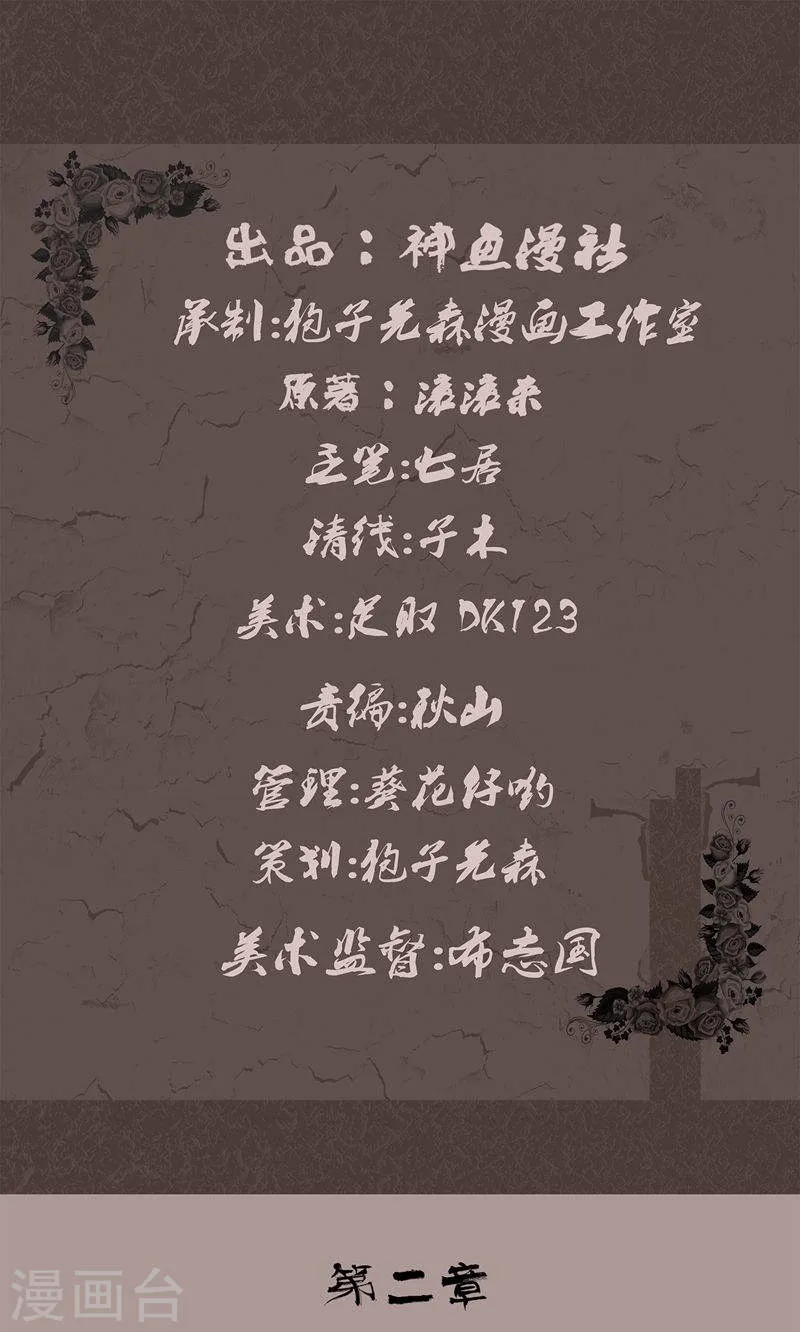 出品：神鱼漫社
承制:狍子先森漫画工作室
原著：滚滚来
主笔:七居
清线:子木
美术:足取 DK123
责编:秋山
管理:葵花仔哟
策划:狍子先森
美术监督:布志国
第二章
漫画台